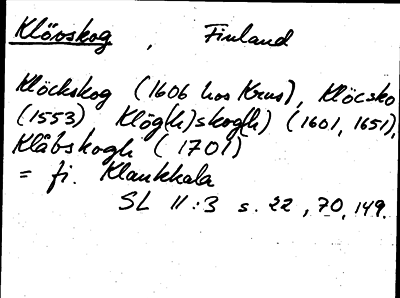 Klövskog, Finland
Klöckskog (1606 hos Krus), Klöcsko
(1553) Klög(h)skog(h) (1601, 1651),
Klåbskogh (1701)
= fi. Klaukkala
SL II:3 s. 22, 70, 149.